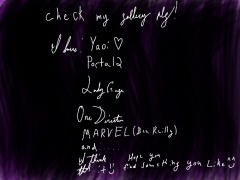 check my gallery plz!
I love: Yaoi ♡
Portal 2
Lady Gaga
One Direction
MARVEL (Ben Reilly)
and ......
I think
that it
Hope you
find something you Like ^^